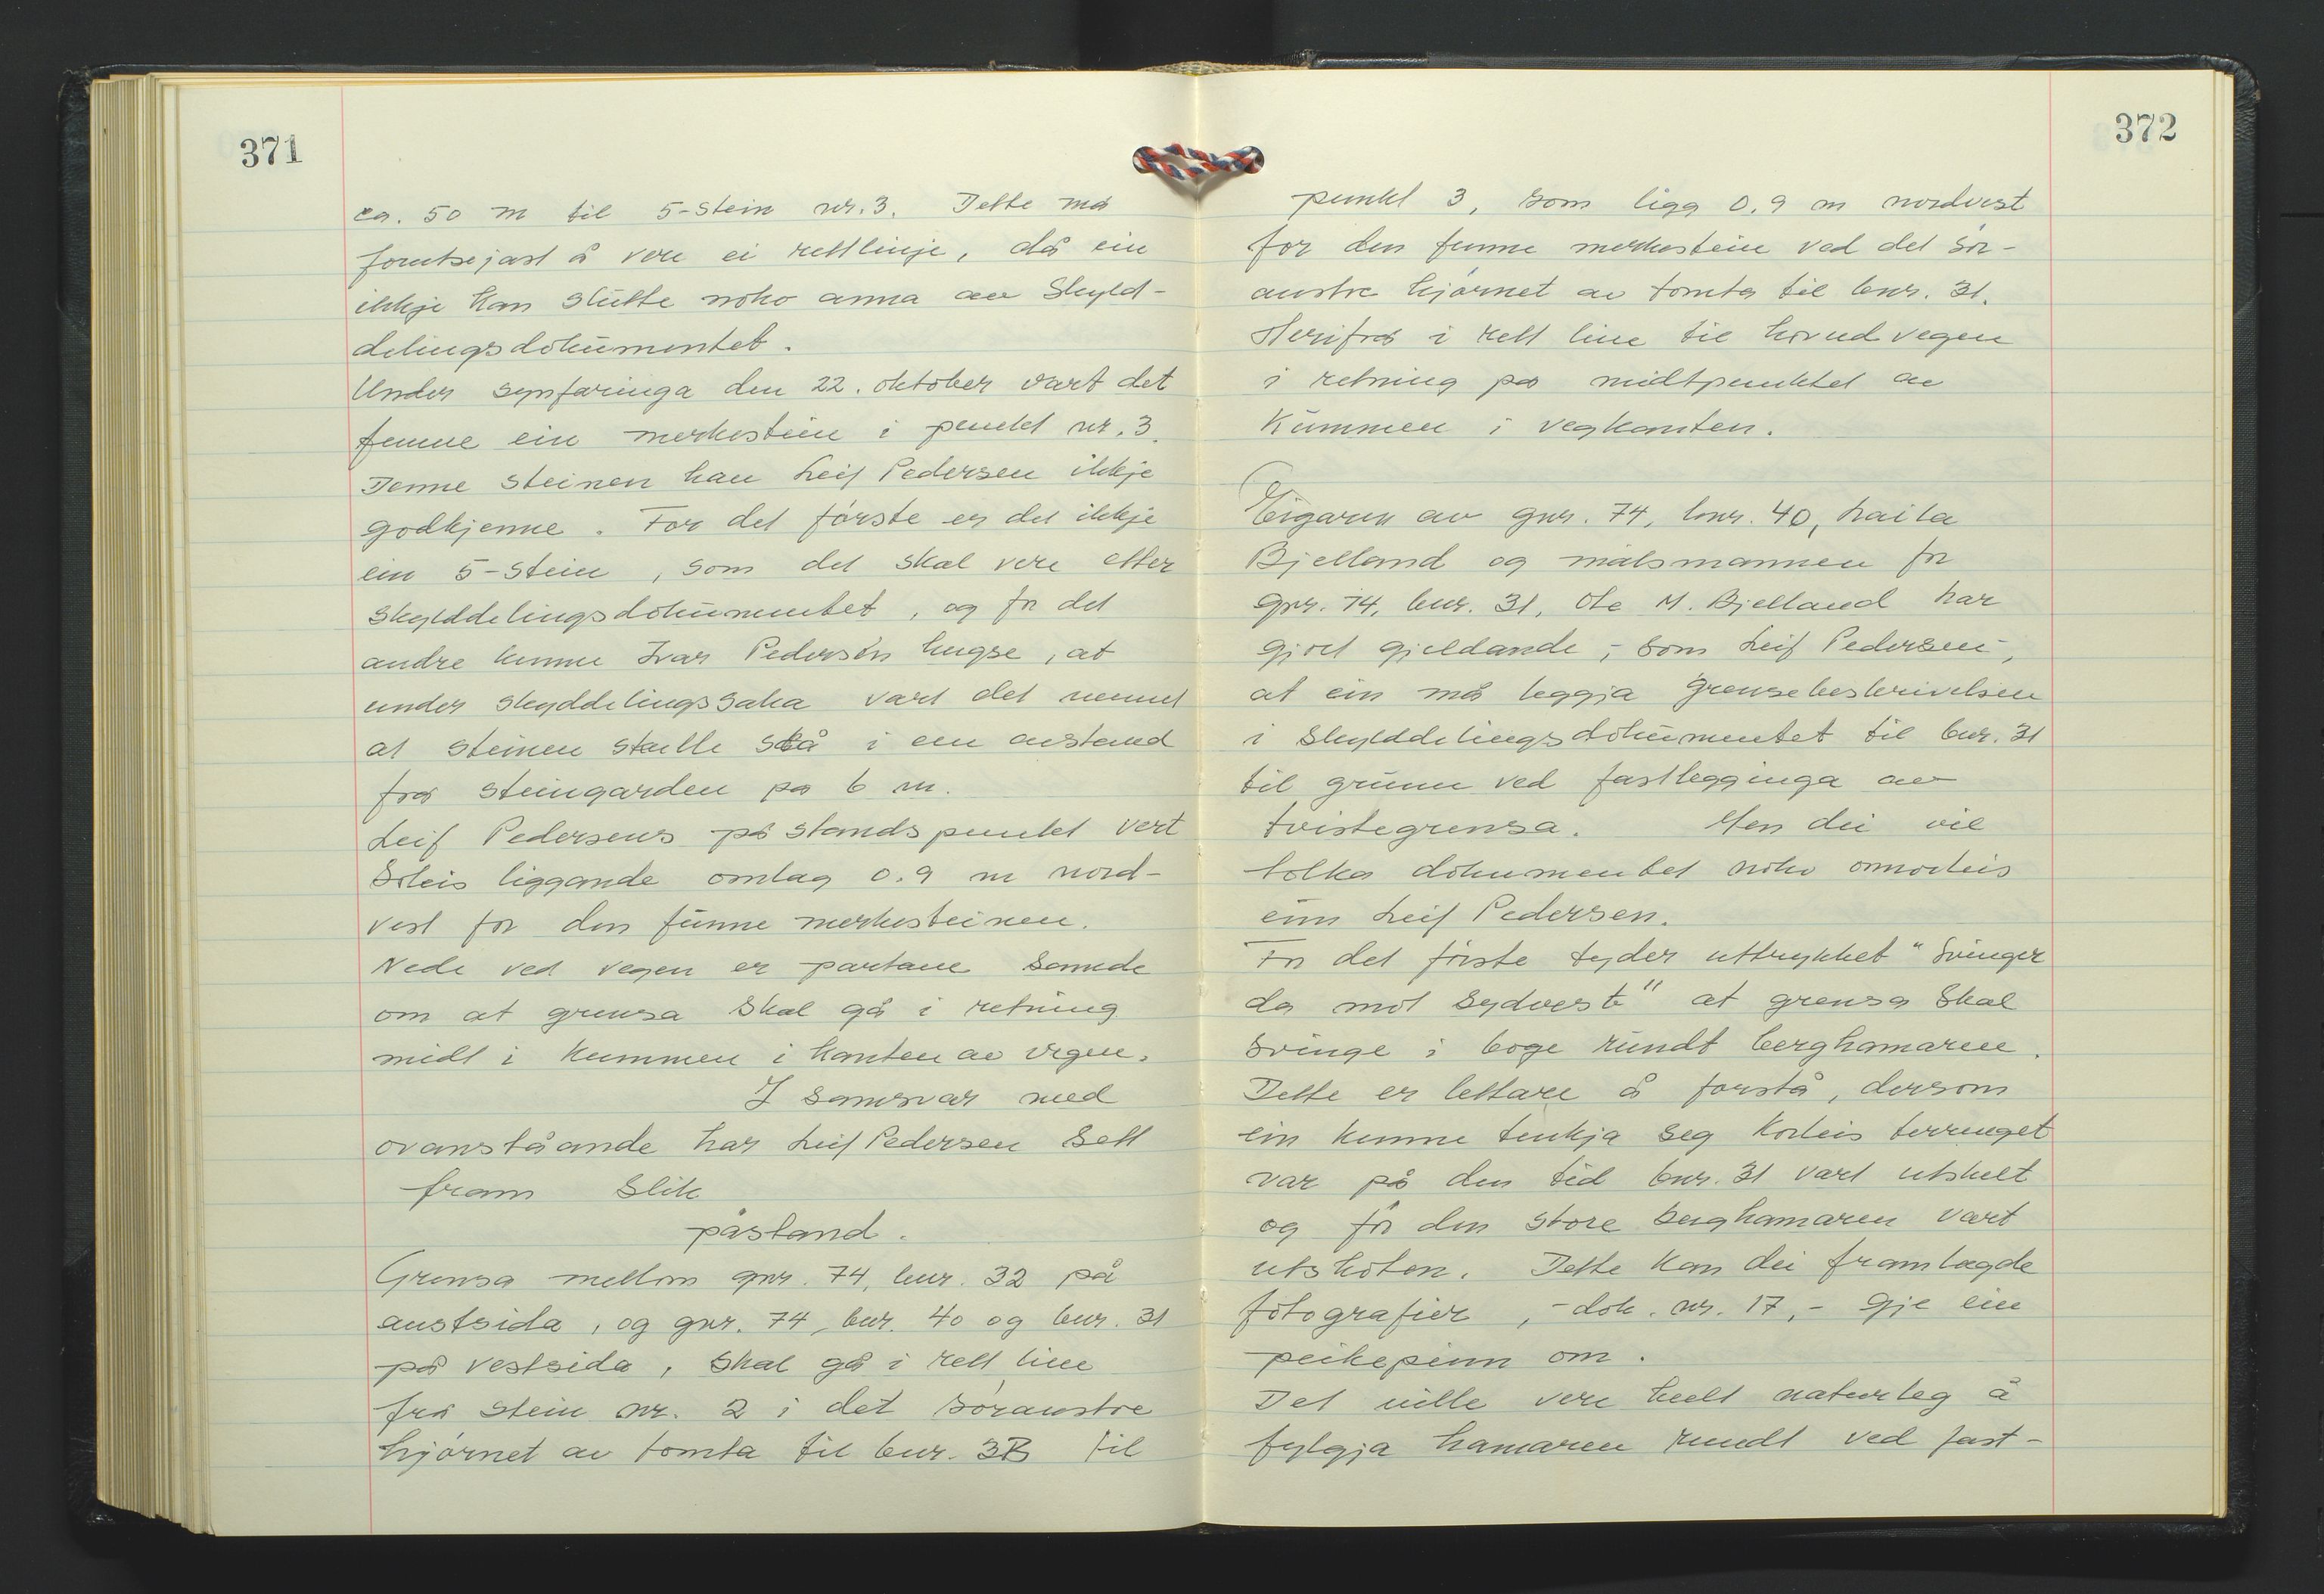 371
ca. 50 m til 5-stein nr. 3. Dette må
forutsejast å vere ei rettlinje, då ein
ikkje kan slutte noko anna av Skyld-
delingsdokumentet.
Under synfaringa den 22. oktober vart det
funne ein merkestein i punkt nr. 3.
Denne steinen kan Leif Pedersen ikkje
godkjenne. For det første er det ikkje
ein 5-stein, som det skal vere etter
skylddelingsdokumentet, og for det
andre kunne Ivar Pedersen hugse, at
under skyddelingssaka vart det nemnt
at steinen skulle stå i ein avstand
frå steingarden på 6 m.
Leif Pedersens påstandspunkt vert
Soleis liggande omlag 0.9 m nord-
vest for den funne merkesteinen.
Nede ved vegen er partane samde
om at grensa skal gå i retning
midt i kummen i kanten av vegen.
I samsvar med
ovanståande har Leif Pedersen sett
fram slik
påstand.
Grensa mellom gnr. 74, bnr. 32 på
austsida, og gnr. 74, bnr. 40 og bnr. 31
på vestsida, skal gå i rett line
frå stein nr. 2 i det søraustre
hjørnet av tomta til bnr. 3B til
372
punkt 3, som ligg 0.9 m nordvest
for den funne merkestein ved det sør-
austre hjørnet av tomta til bnr. 31.
Herifrå i rett line til hovudvegen
i retning på midtpunktet av
Kummen i vegkanten.
Eigaren av gnr. 74, bnr. 40, Laila
Bjelland og målsmannen for
gnr. 74, bnr. 31, Ole M. Bjelland har
gjort gjeldande, - som Leif Pedersen -,
at ein må leggja grensebeskrivelsen
i Skylddelingsdokumentet til bnr. 31
til grunn ved fastlegginga av
tvistegrensa. Men dei vil
tolka dokumentet noko onnorleis
enn Leif Pedersen.
For det første tyder uttrykket "Svinger
da mot Sydvest" at grensa skal
svinge i boge rundt berghamaren.
Dette er lettare å forstå, dersom
ein kunne tenkja seg korleis terrenget
var på den tid bnr. 31 vart utskelt
og før den store berghamaren vart
utskoten. Dette kan dei framlagde
fotografier, - dok. nr. 17, - gje ein
peikepinn om.
Det ville vere heilt naturleg å
fylgja hamaren rundt ved fast-